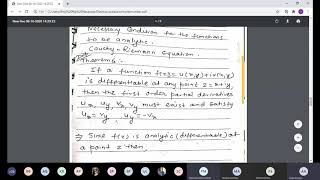 Necessary Condition for the functions
to be analytic.
Cauchy-Riemann Equation.
Theorem:
If a function f(z)= u(x,y)+iv(x,y)
is differentiable at any point z=x+iy,
then the first order partial derivatives
ux, uy, vx, vy must exist and satisfy
ux=vy, uy=-vx
⇒ Since f(z) is analytic (differentiable) at
a point z then,